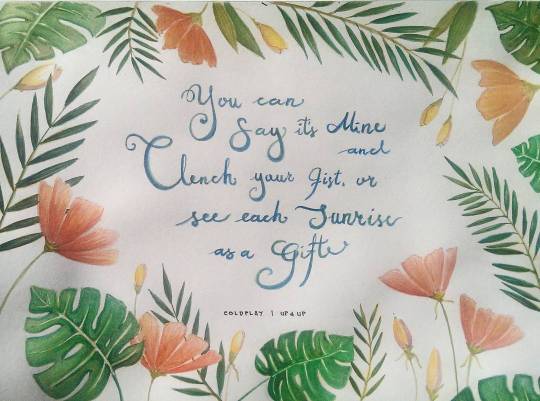 You can
Say it's Mine
and
Clench your fist, or
see each Sunrise
as a Gift
COLDPLAY | UP & UP